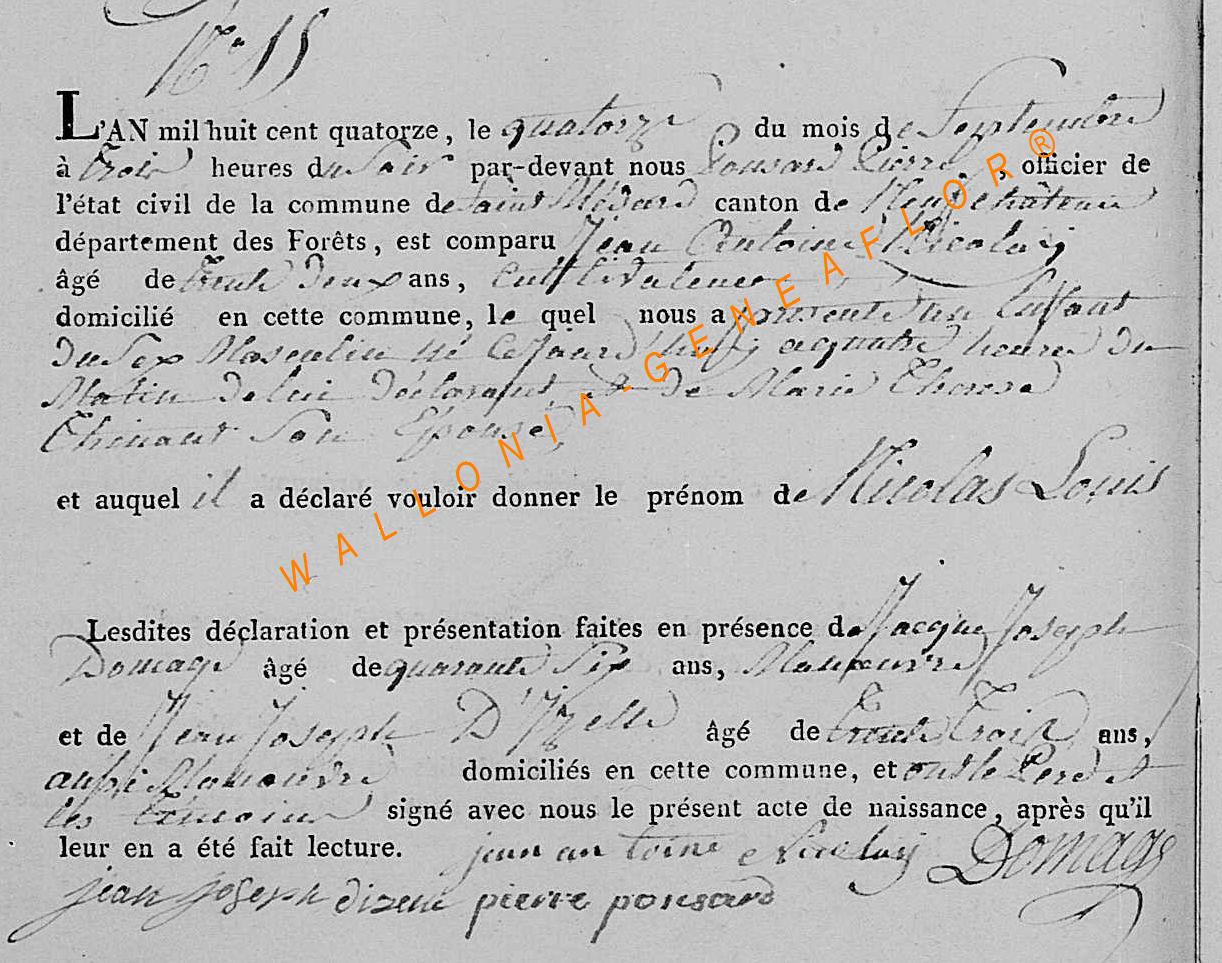 N.° 15
L'AN mil huit cent quatorze, le quatorze du mois de Septembre
à trois heures du Soir par-devant nous Ponsard Pierre, officier de
l'état civil de la commune de Saint Médard canton de Neufchâteau
département des Forêts, est comparu Jean Antoine Nicolaij
âgé de trente deux ans, Cultivateur
domicilié en cette commune, le quel nous a présenté un Enfant
du Sex Masculin né Cejourd'huij a quatre heures du
Matin de lui déclarant, & de Marie Therese
Thinant Son Epouse,
et auquel il a déclaré vouloir donner le prénom de Nicolas Louis
Lesdites déclaration et présentation faites en présence de Jacque Joseph
Domage âgé de quarante Six ans, Maneuvre
et de Jean Joseph D'Izelle âgé de trente Trois ans,
aussi Maneuvre domiciliés en cette commune, et ont le Pere et
les temoins signé avec nous le présent acte de naissance, après qu'il
leur en a été fait lecture. jean antoine Nicolaij Domage
jean joseph dizelle pierre ponsard
WALLONIA-GENEAFLOR®